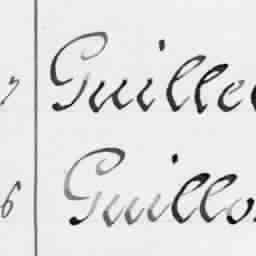 7 Guille
6 Guillo